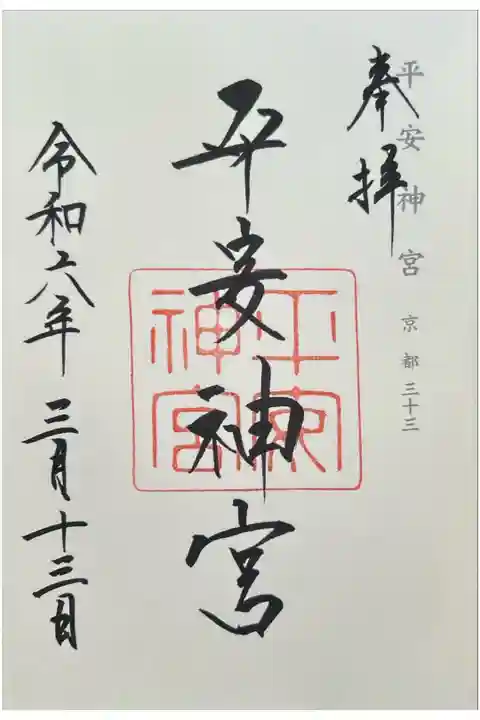 平安神宮 京都三十三
奉拝
平安神宮
平安神宮
令和六年三月十三日